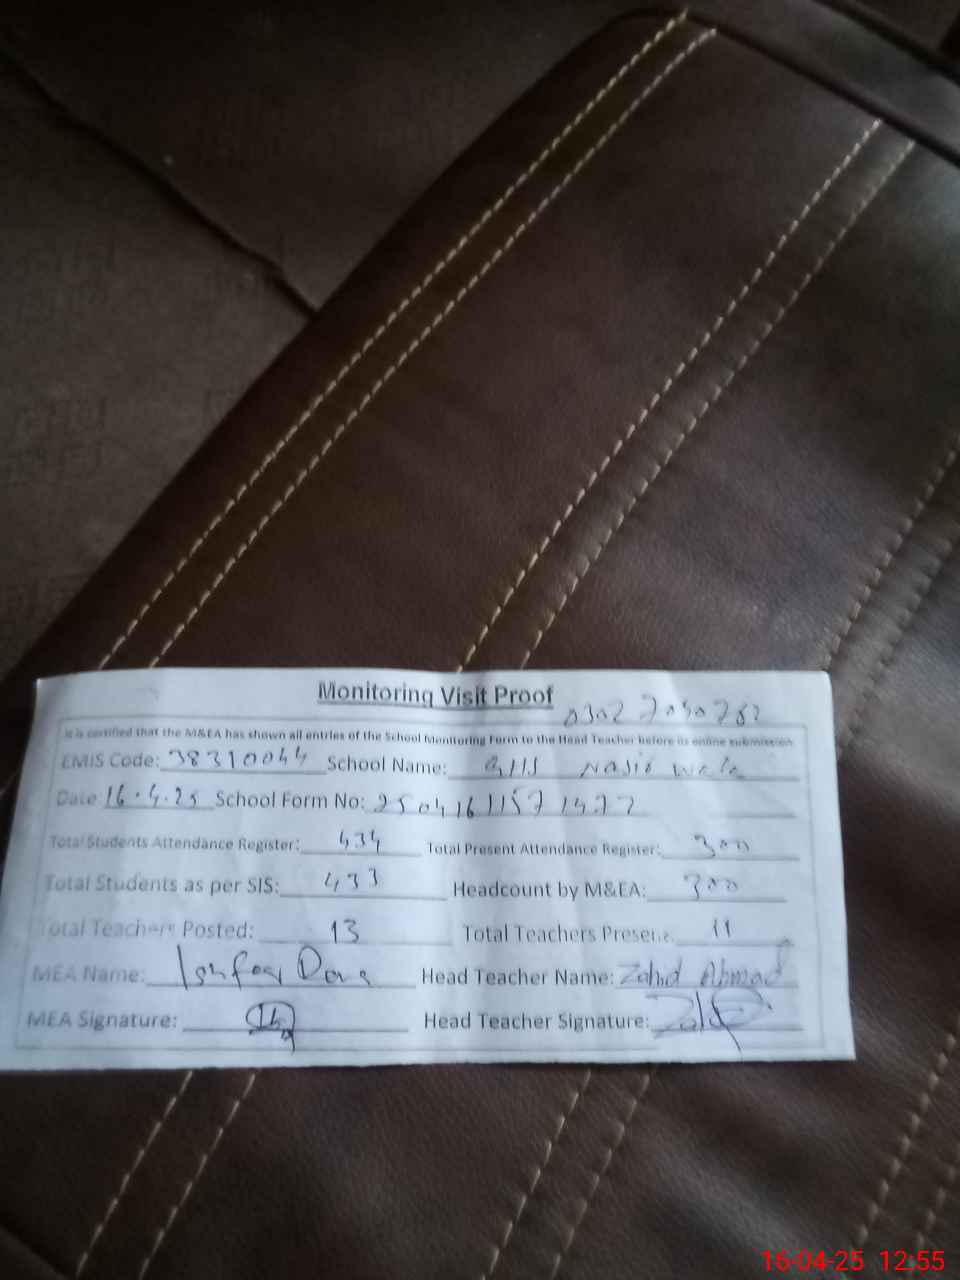 Monitoring Visit Proof
0302 7050762
It is certified that the M&EA has shown all entries of the School Monitoring Form to the Head Teacher before its online submission.
EMIS Code: 38310044 School Name: GHS Nasir Wala
Date: 16.4.25 School Form No: 25041611571477
Total Students Attendance Register: 434 Total Present Attendance Register: 300
Total Students as per SIS: 433 Headcount by M&EA: 300
Total Teachers Posted: 13 Total Teachers Present: 11
MEA Name: Head Teacher Name: Zahid Ahmad
MEA Signature: Head Teacher Signature:
16-04-25 12:55